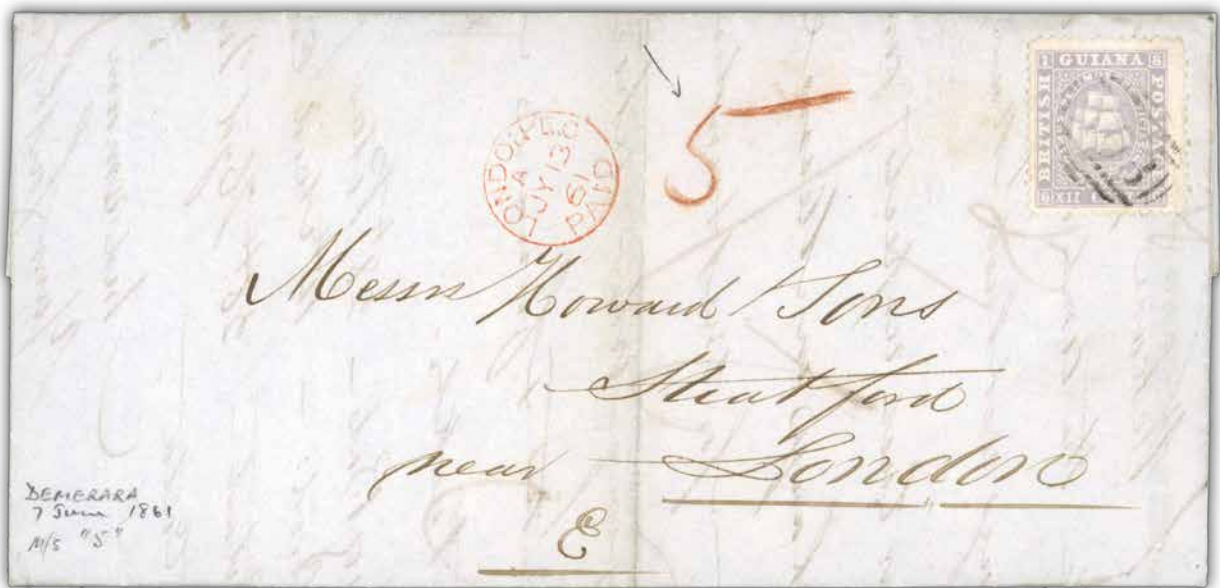 1 GUIANA 8
BRITISH
6 XII
LONDON.E.C
A
JY 13
61
PAID
5
Messrs Howard / Sons
Stratford
near London
E
DEMERARA
7 June 1861
M/S "5"